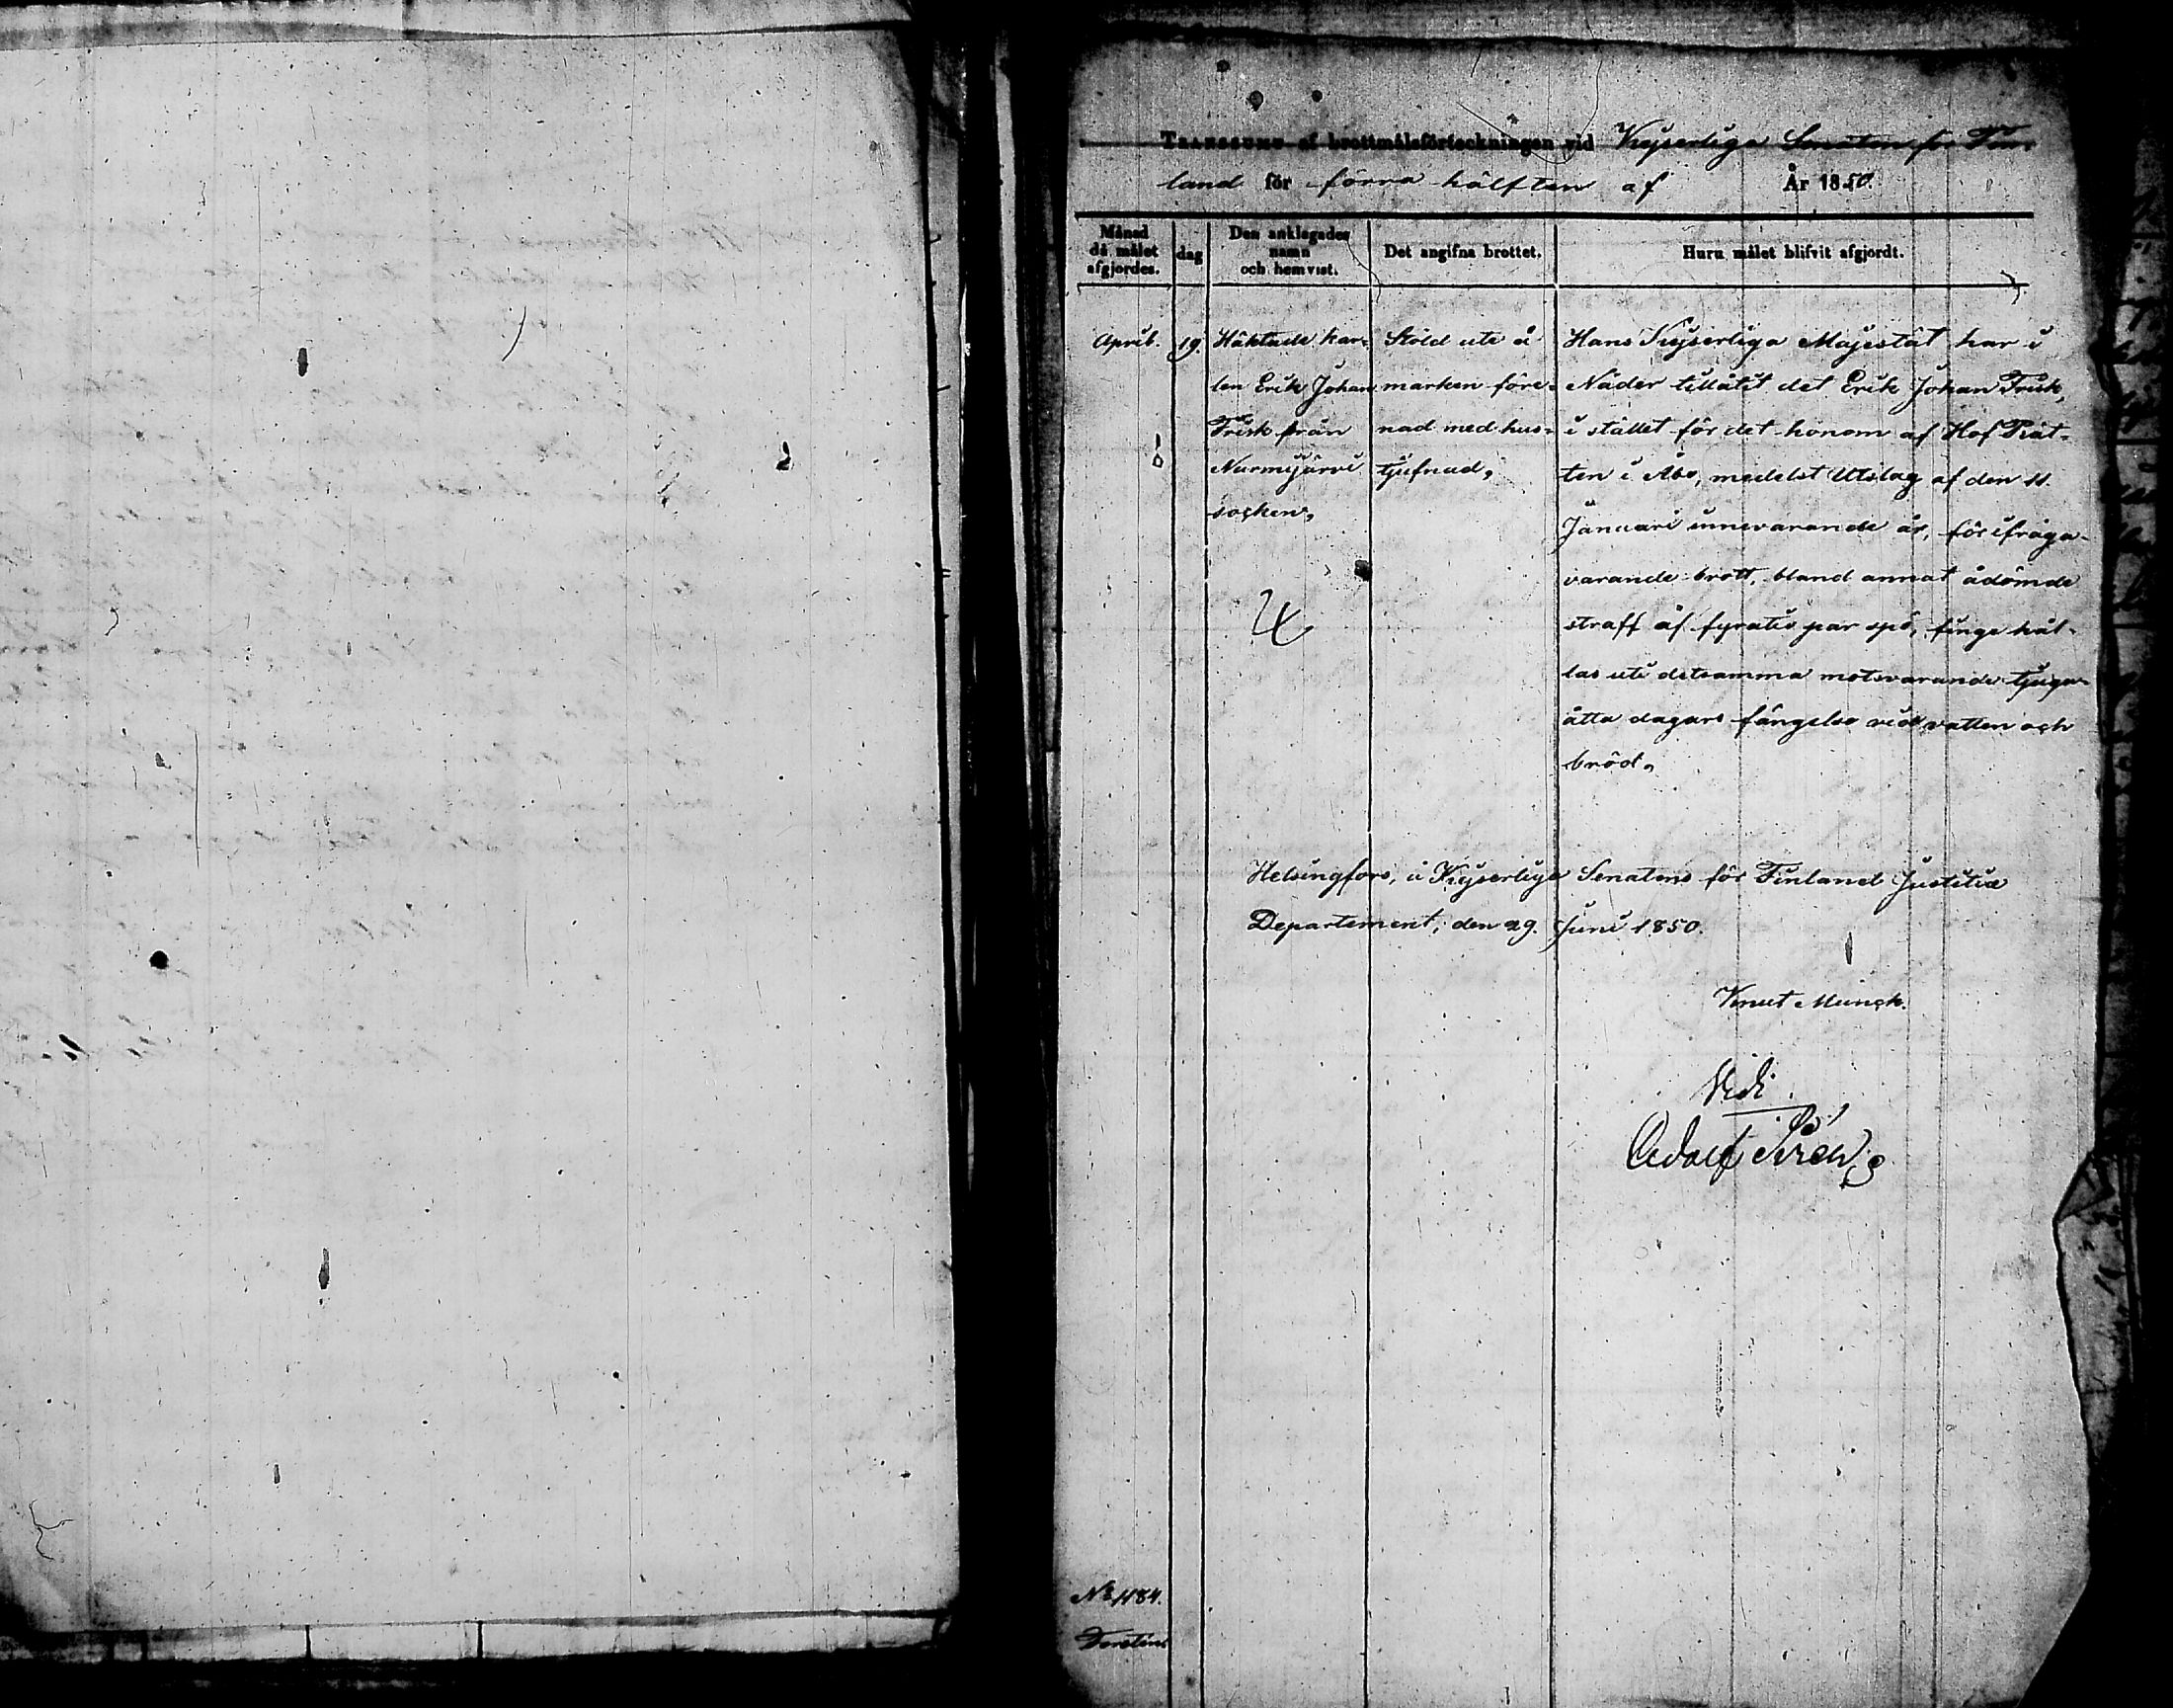 Transsumt af brottmålsförteckningen vid Kejserliga Senaten för Fin-
land för förra hälften af År 1850.
Månad då målet afgjordes.
dag
Den anklagades namn och hemvist.
Det angifna brottet.
Huru målet blifvit afgjordt.
April.
19.
Häktade kar-
len Erik Johan
Frisk från
Nurmijärvi
socken,
Stöld ute å
marken före-
nad med hus-
tjufnad,
Hans Kejserliga Majestät har i
Nåder tillåtit det Erik Johan Frisk,
i stället för det honom af Hof Rät-
ten i Åbo, medelst Utslag af den 11.
Januari innevarande år, för ifråga-
varande brott, bland annat ådömde
straff af fyratio par spö, finge hål-
las ute detsamma motsvarande tjugu-
åtta dagars fängelse vid vatten och
bröd.
Helsingfors, i Kejserliga Senatens för Finland Justitiæ
Departement, den 29. Juni 1850.
Knut Munck.
Vidi
Adolf
No 1184.